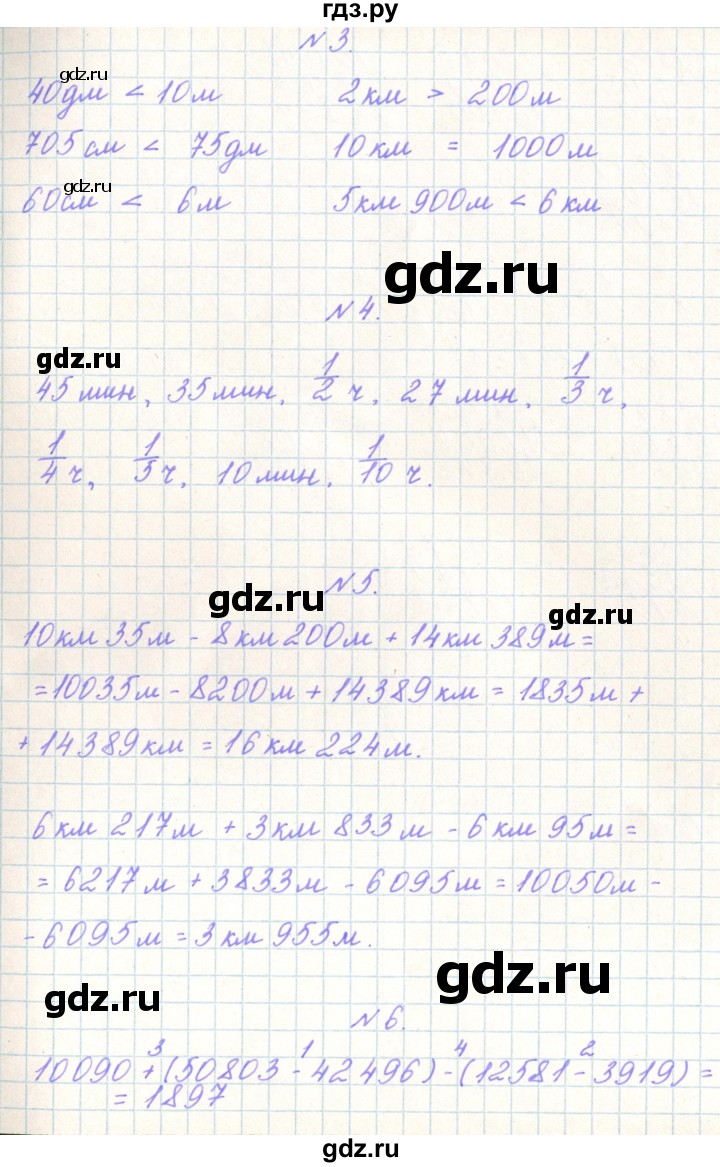 гдз.ру
N 3.
gdz.ru
40дм < 10м 2км > 200м
705см < 75дм 10км = 1000м
gdz.ru
60см < 6м 5км 900м < 6км
gdz.ru
N 4.
gdz.ru
45мин, 35мин, 1/2 ч, 27мин, 1/3 ч,
1/4 ч, 1/5 ч, 10мин, 1/10 ч.
N 5.
gdz.ru
gdz.ru
10км 35м - 8км 200м + 14км 389м =
=10035м - 8200м + 14389км = 1835м +
+ 14389км = 16км 224м.
6км 217м + 3км 833м - 6км 95м =
= 6217м + 3833м - 6095м = 10050м -
- 6095м = 3км 955м.
gdz.ru
gdz.ru
N 6.
3 1 4 2
10090 + (50803 - 42496) - (12581 - 3919) =
= 1897
gdz.ru